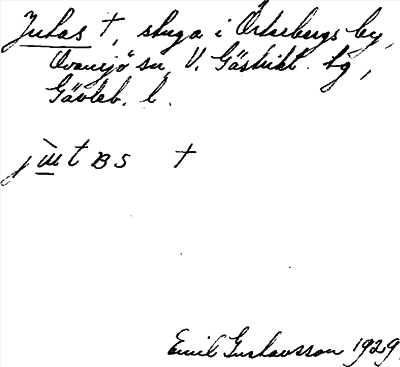 Jutas †, stuga i Österbergs by,
Ovansjö sn, V. Gästrikl. tg,
Gävleb. l.
jùtᴀs †
Emil Gustavsson 1929.